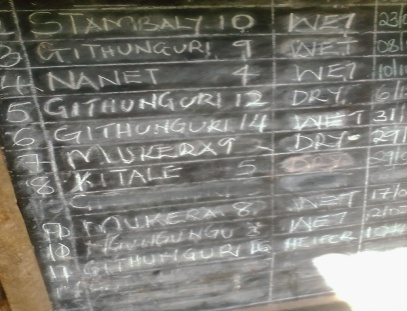 STAMBALY 10 WET 23/
3 GITHUNGURI 9 WET 08/
4 NANET 4 WET 10/1
5 GITHUNGURI 12 DRY 6/1
6 GITHUNGURI 14 WET 31/
7 MUKERA 9 DRY 29/
8 KITALE 5 DRY
9 MUKERA 8 WET 17/0
10 NGUNGUNGU WET 12/0
11 GITHUNGURI HEIFER